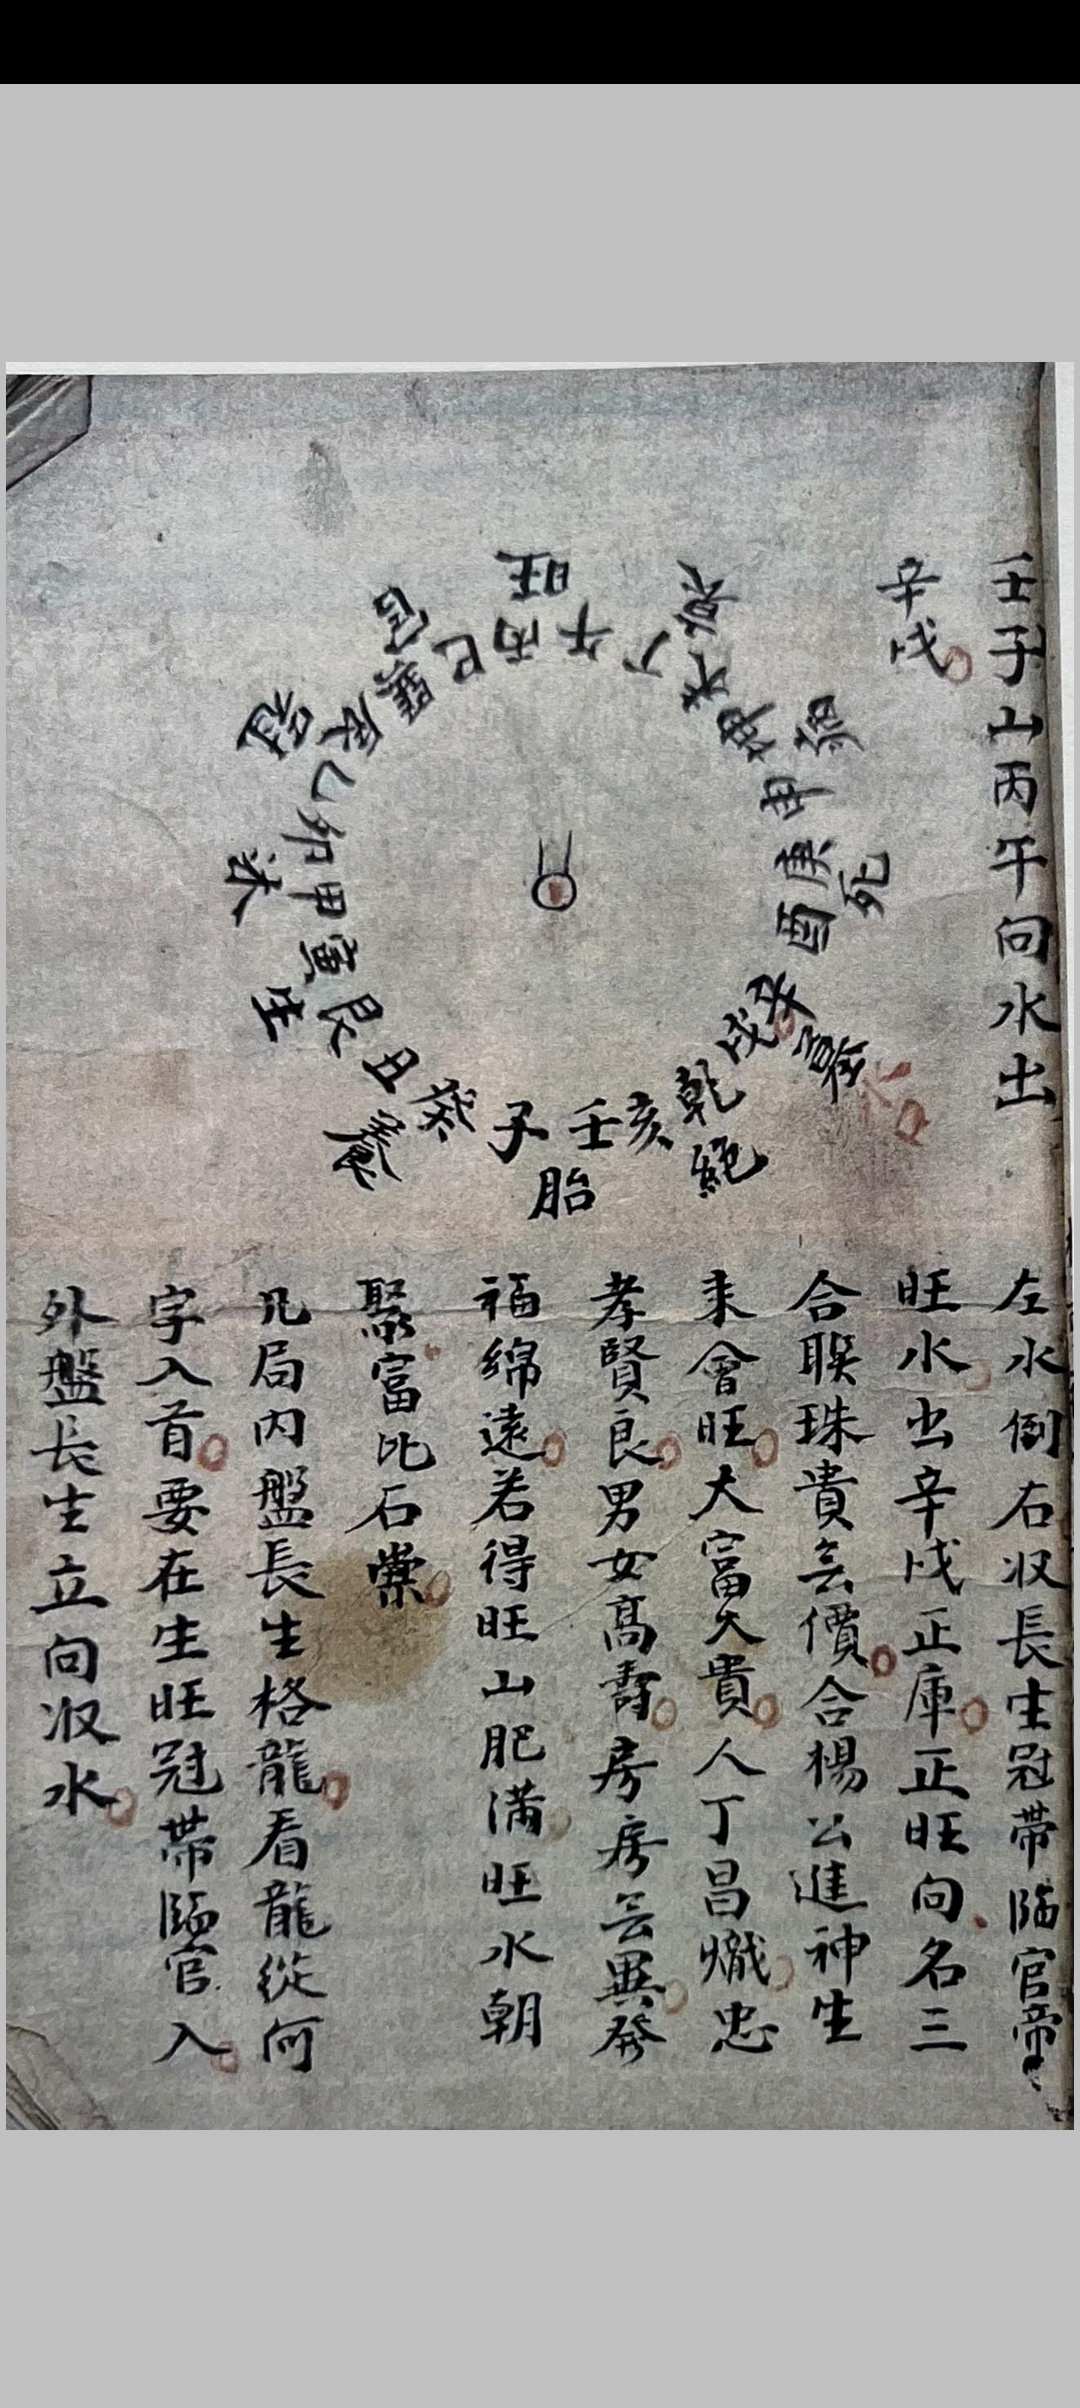 壬子山丙午向水出
辛戌
旺
丙午
丁
衰
未
坤
病
申
庚
死
酉
辛
戌
墓
水口
乾
絕
亥
壬
胎
子
癸
養
丑
艮
生
寅
甲
沐
卯
乙
冠
辰
巽
官
巳
左水倒右収長生冠帶臨官帝
旺水出辛戌正庫正旺向名三
合聯珠貴无價合楊公進神生
来會旺大富大貴人丁昌熾忠
孝賢良男女高壽房房无異發
福綿遠若得旺山肥满旺水朝
聚富比石崇
凡局内盤長生格龍看龍從何
字入首要在生旺冠帶臨官入
外盤长生立向収水